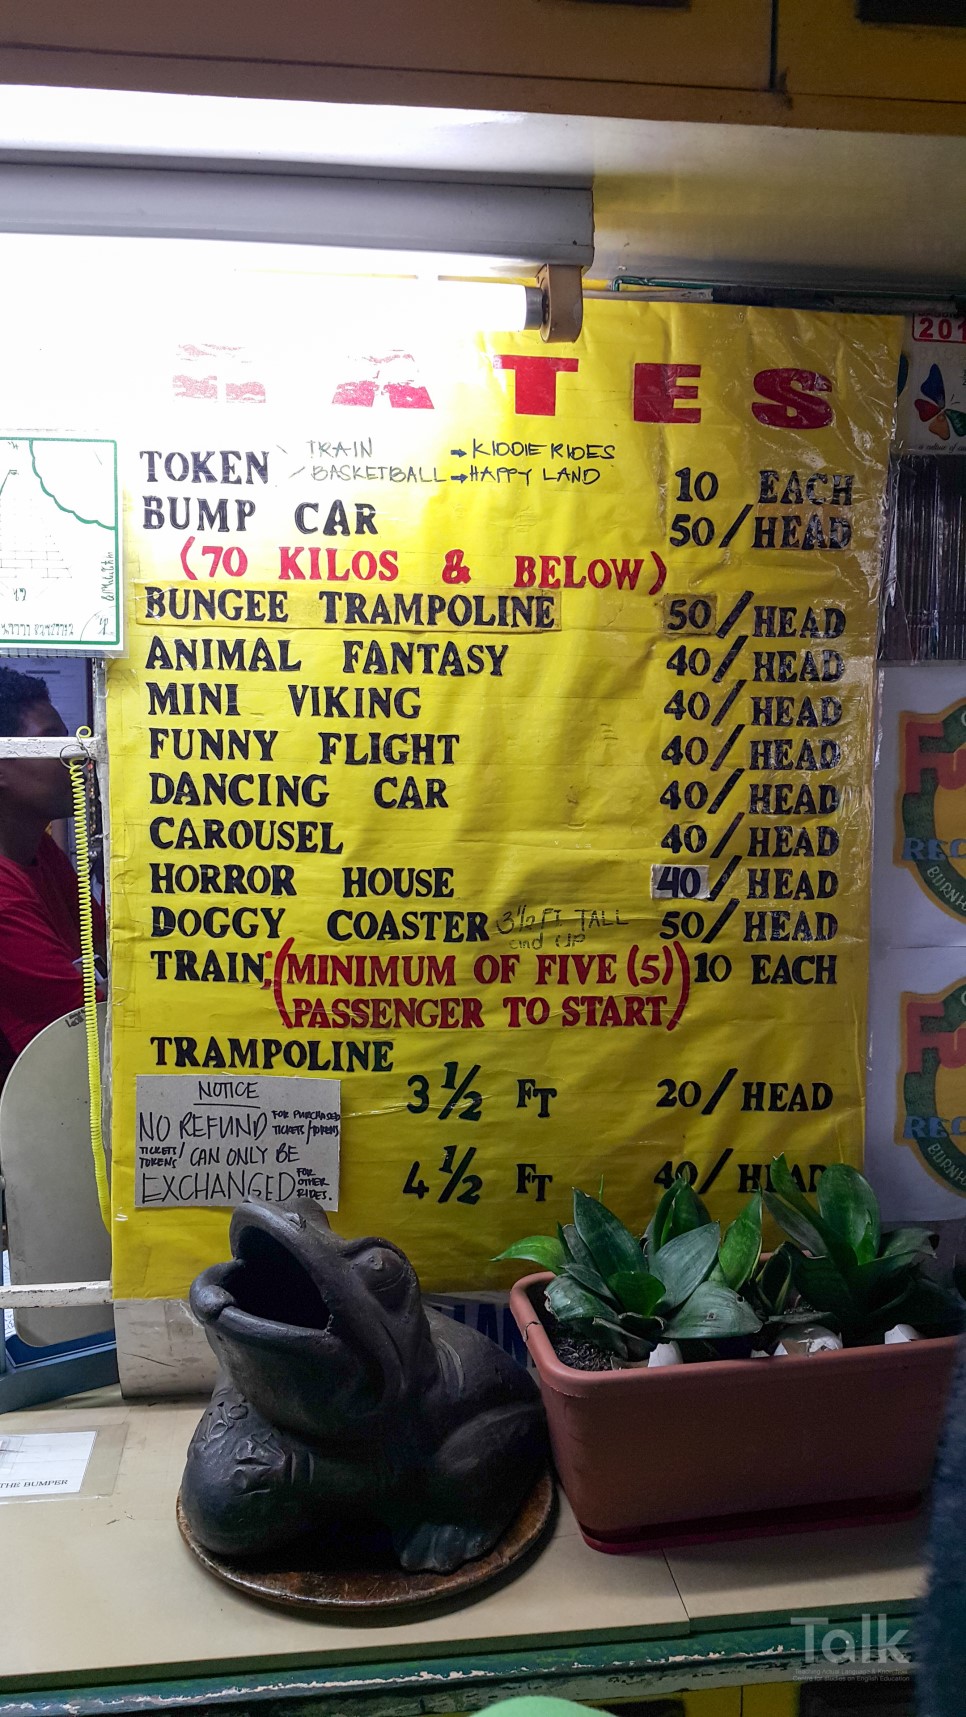 RATES
TOKEN TRAIN → KIDDIE RIDES
BASKETBALL → HAPPY LAND
10 EACH
BUMP CAR 50/HEAD
(70 KILOS & BELOW)
BUNGEE TRAMPOLINE 50/HEAD
ANIMAL FANTASY 40/HEAD
MINI VIKING 40/HEAD
FUNNY FLIGHT 40/HEAD
DANCING CAR 40/HEAD
CAROUSEL 40/HEAD
HORROR HOUSE 40/HEAD
DOGGY COASTER 3 1/2 FT TALL and UP 50/HEAD
TRAIN; (MINIMUM OF FIVE (5) 10 EACH
PASSENGER TO START)
TRAMPOLINE
3 1/2 FT 20/HEAD
4 1/2 FT 40/HEAD
NOTICE
NO REFUND FOR PURCHASED TICKETS/TOKENS
TICKETS/TOKENS CAN ONLY BE
EXCHANGED FOR OTHER RIDES.
201
THE BUMPER
Talk
Teaching Actual Language & Knowledge
Centre for Studies on English Education